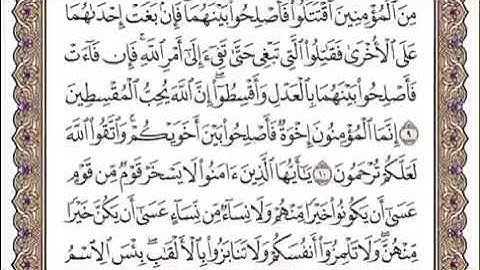 مِنَ ٱلْمُؤْمِنِينَ ٱقْتَتَلُوا۟ فَأَصْلِحُوا۟ بَيْنَهُمَا ۖ فَإِنۢ بَغَتْ إِحْدَىٰهُمَا
عَلَى ٱلْأُخْرَىٰ فَقَٰتِلُوا۟ ٱلَّتِى تَبْغِى حَتَّىٰ تَفِىٓءَ إِلَىٰٓ أَمْرِ ٱللَّهِ ۚ فَإِن فَآءَتْ
فَأَصْلِحُوا۟ بَيْنَهُمَا بِٱلْعَدْلِ وَأَقْسِطُوٓا۟ ۖ إِنَّ ٱللَّهَ يُحِبُّ ٱلْمُقْسِطِينَ
٩ إِنَّمَا ٱلْمُؤْمِنُونَ إِخْوَةٌ فَأَصْلِحُوا۟ بَيْنَ أَخَوَيْكُمْ ۚ وَٱتَّقُوا۟ ٱللَّهَ
لَعَلَّكُمْ تُرْحَمُونَ ١٠ يَٰٓأَيُّهَا ٱلَّذِينَ ءَامَنُوا۟ لَا يَسْخَرْ قَوْمٌ مِّن قَوْمٍ
عَسَىٰٓ أَن يَكُونُوا۟ خَيْرًا مِّنْهُمْ وَلَا نِسَآءٌ مِّن نِّسَآءٍ عَسَىٰٓ أَن يَكُنَّ خَيْرًا
مِّنْهُنَّ ۖ وَلَا تَلْمِزُوٓا۟ أَنفُسَكُمْ وَلَا تَنَابَزُوا۟ بِٱلْأَلْقَٰبِ ۖ بِئْسَ ٱلِٱسْمُ